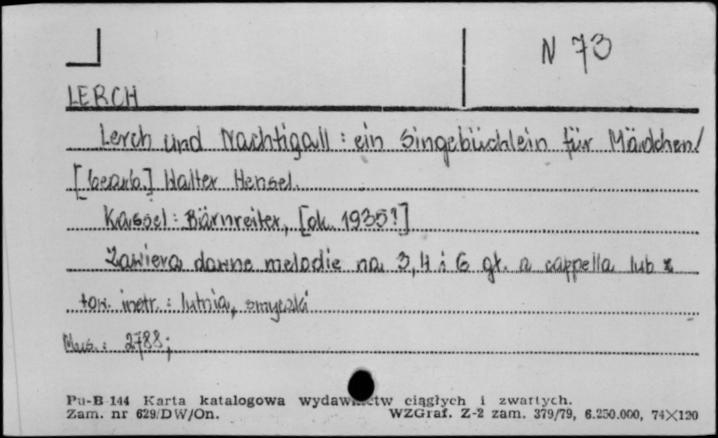 N 73
LERCH
Lerch und Nachtigall : ein Singebüchlein für Mädchen/
[bearb.] Walter Hensel.
Kassel : Bärnreiter, [ok. 1935?]
Zawiera dawne melodie na 3, 4 i 6 gł. a cappella lub z
tow. instr. : lutnia, smyczki
Mus. : 2788;
Pu-B 144 Karta katalogowa wydawnictw ciągłych i zwartych.
Zam. nr 629/DW/On. WZGraf. Z-2 zam. 379/79, 6.250.000, 74×120